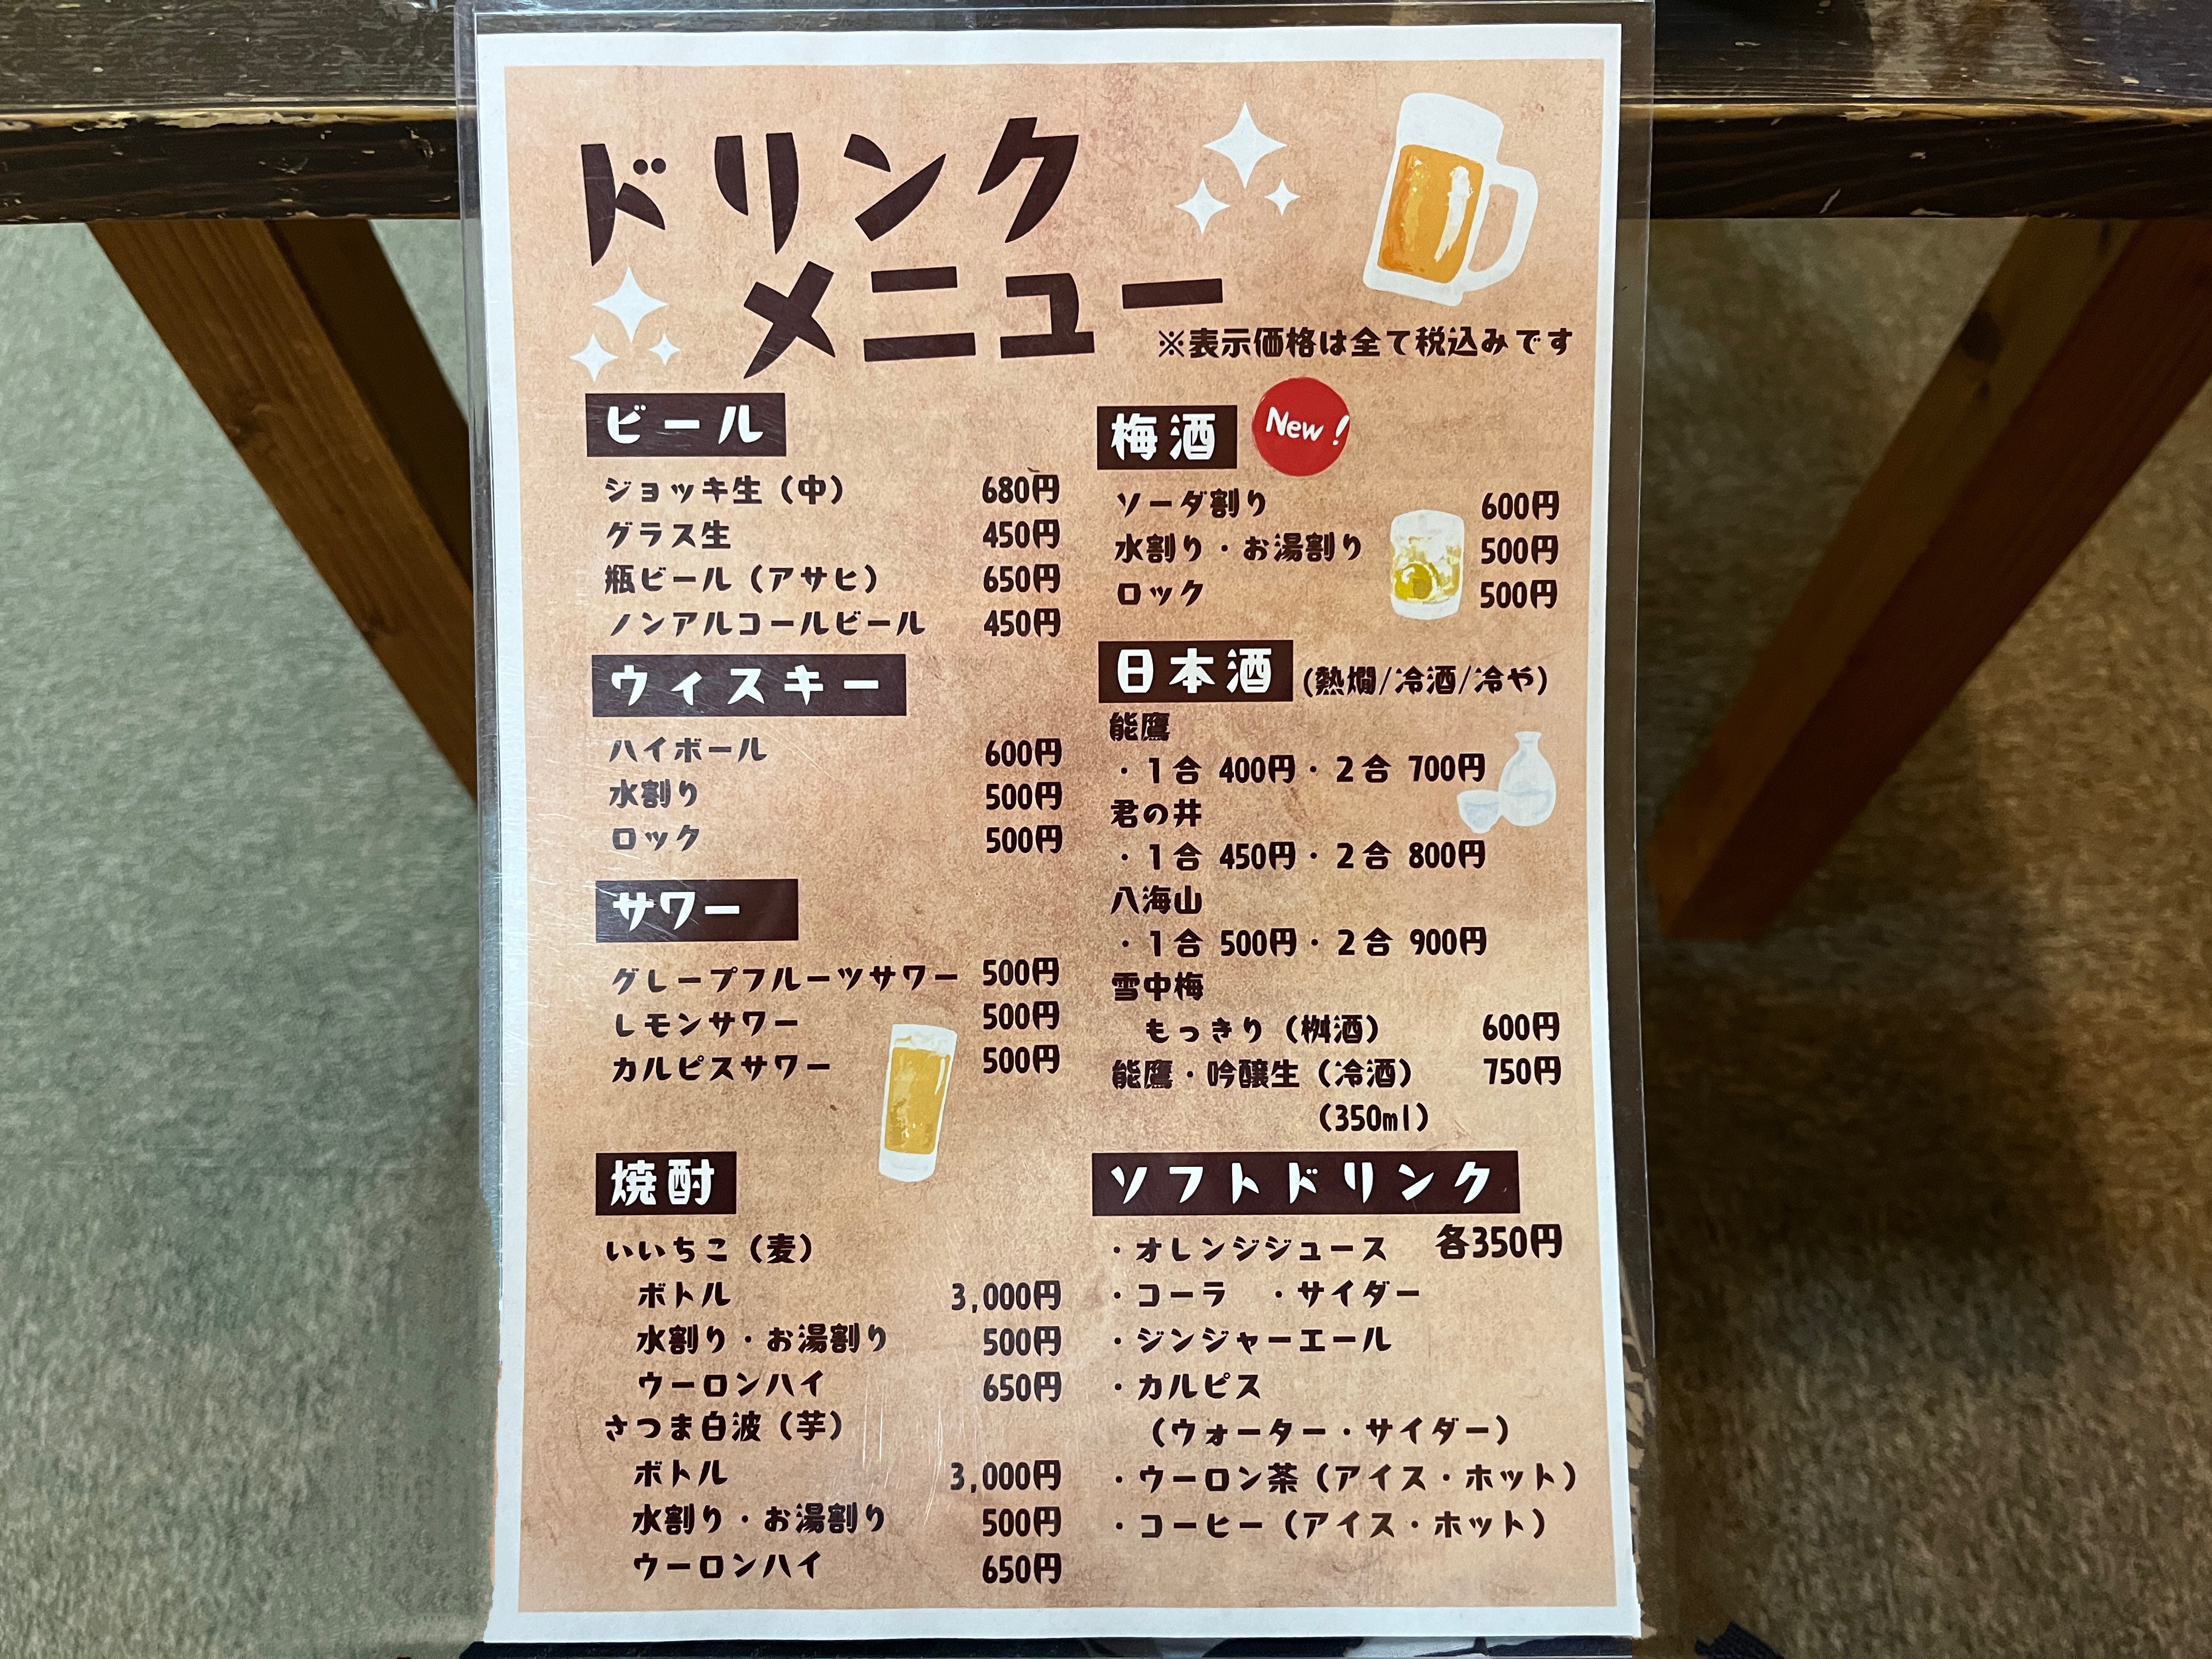 ドリンク
メニュー
※表示価格は全て税込みです
ビール
ジョッキ生（中） 680円
グラス生 450円
瓶ビール（アサヒ） 650円
ノンアルコールビール 450円
ウィスキー
ハイボール 600円
水割り 500円
ロック 500円
サワー
グレープフルーツサワー 500円
レモンサワー 500円
カルピスサワー 500円
焼酎
いいちこ（麦）
ボトル 3,000円
水割り・お湯割り 500円
ウーロンハイ 650円
さつま白波（芋）
ボトル 3,000円
水割り・お湯割り 500円
ウーロンハイ 650円
梅酒 New!
ソーダ割り 600円
水割り・お湯割り 500円
ロック 500円
日本酒 (熱燗/冷酒/冷や)
能鷹
・1合 400円・2合 700円
君の井
・1合 450円・2合 800円
八海山
・1合 500円・2合 900円
雪中梅
もっきり（桝酒） 600円
能鷹・吟醸生（冷酒） 750円
（350ml）
ソフトドリンク
・オレンジジュース 各350円
・コーラ ・サイダー
・ジンジャーエール
・カルピス
（ウォーター・サイダー）
・ウーロン茶（アイス・ホット）
・コーヒー（アイス・ホット）